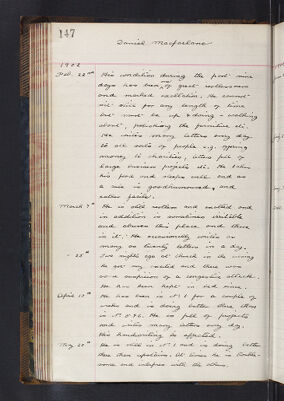 147
Daniel Macfarlane
1902
Feb. 22nd His condition during the past nine
days has been of great restlessness
and marked exaltation. He cannot
sit still for any length of time
but must be up & doing - walking
about, polishing the furniture etc.
He writes many letters every day
to all sorts of people e.g. offering
money to charities, letters full of
large business projects etc. He takes
his food and sleeps well and as
a rule is goodhumoured and
rather facile.
March 7th He is still restless and exalted and
in addition is sometimes irritable
and abuses this place and those
in it. He occasionally writes as
many as twenty letters in a day.
" 25th Two nights ago at Church in the evening
he got very excited and there was
a suspicion of a congestive attack.
He has been kept in bed since.
April 15th He has been in No 1 for a couple of
weeks and is doing better there than
in No. He is full of projects
and writes many letters every day.
His handwriting is affected.
May 20th He is still in No 1 and is doing better
there than upstairs. At times he is trouble-
some and interferes with the others.